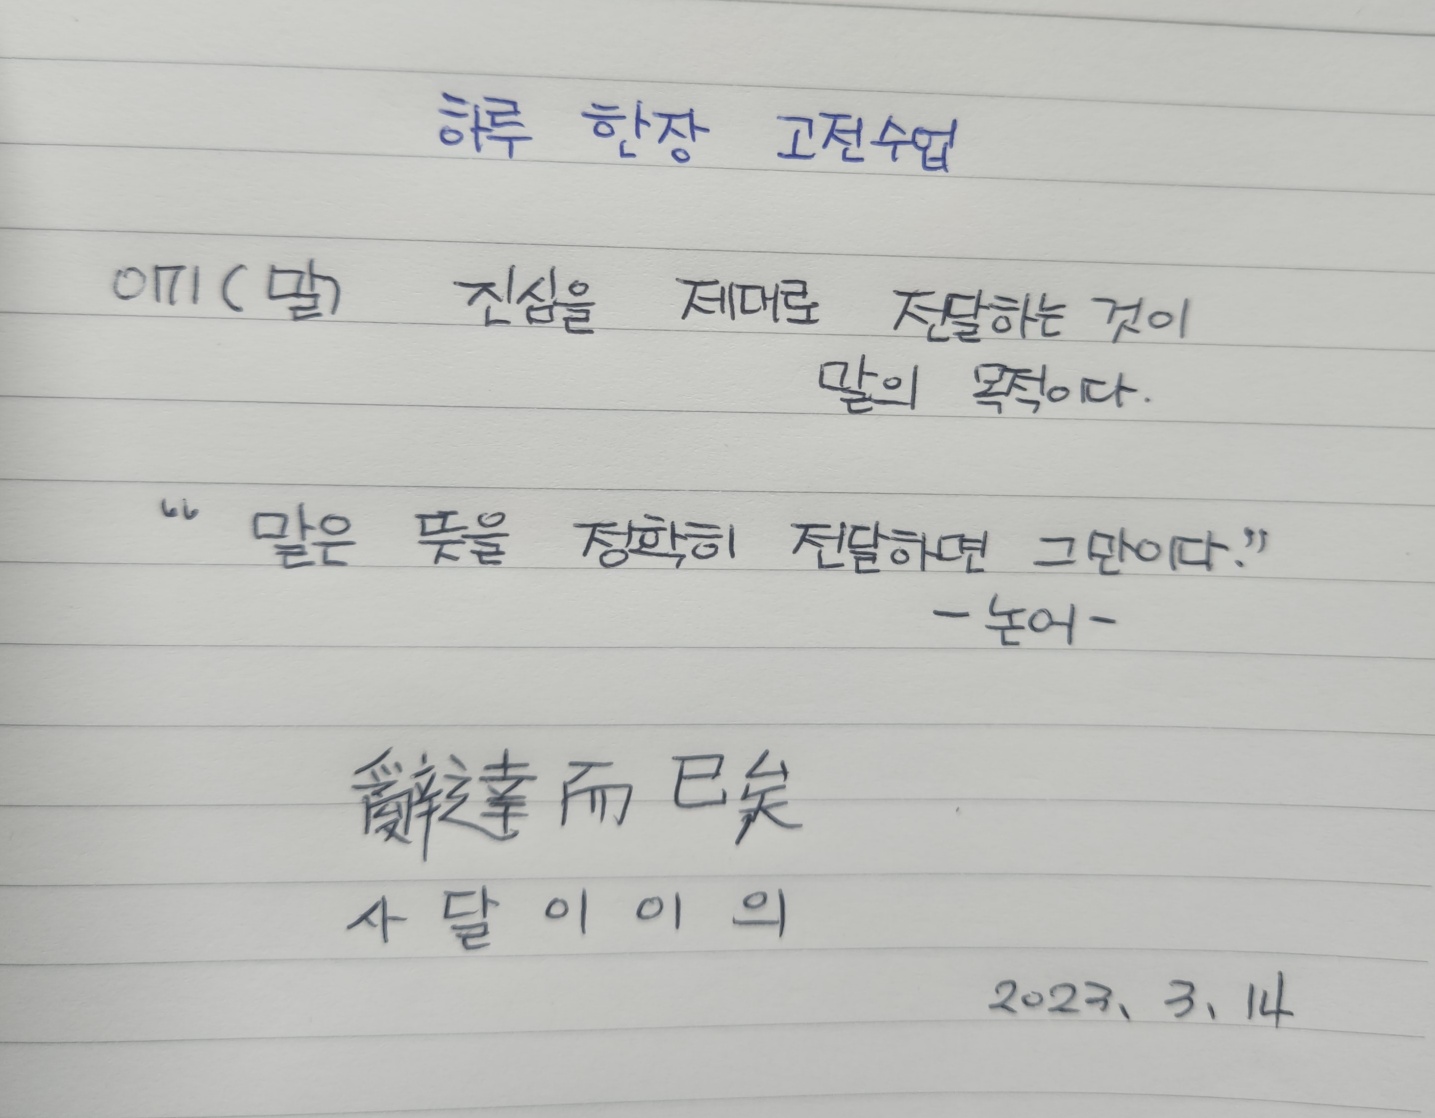 하루 한장 고전수업
071(말) 진심을 제대로 전달하는 것이
말의 목적이다.
“ 말은 뜻을 정확히 전달하면 그만이다.”
- 논어 -
辭達而已矣
사달이이의
2023. 3. 14